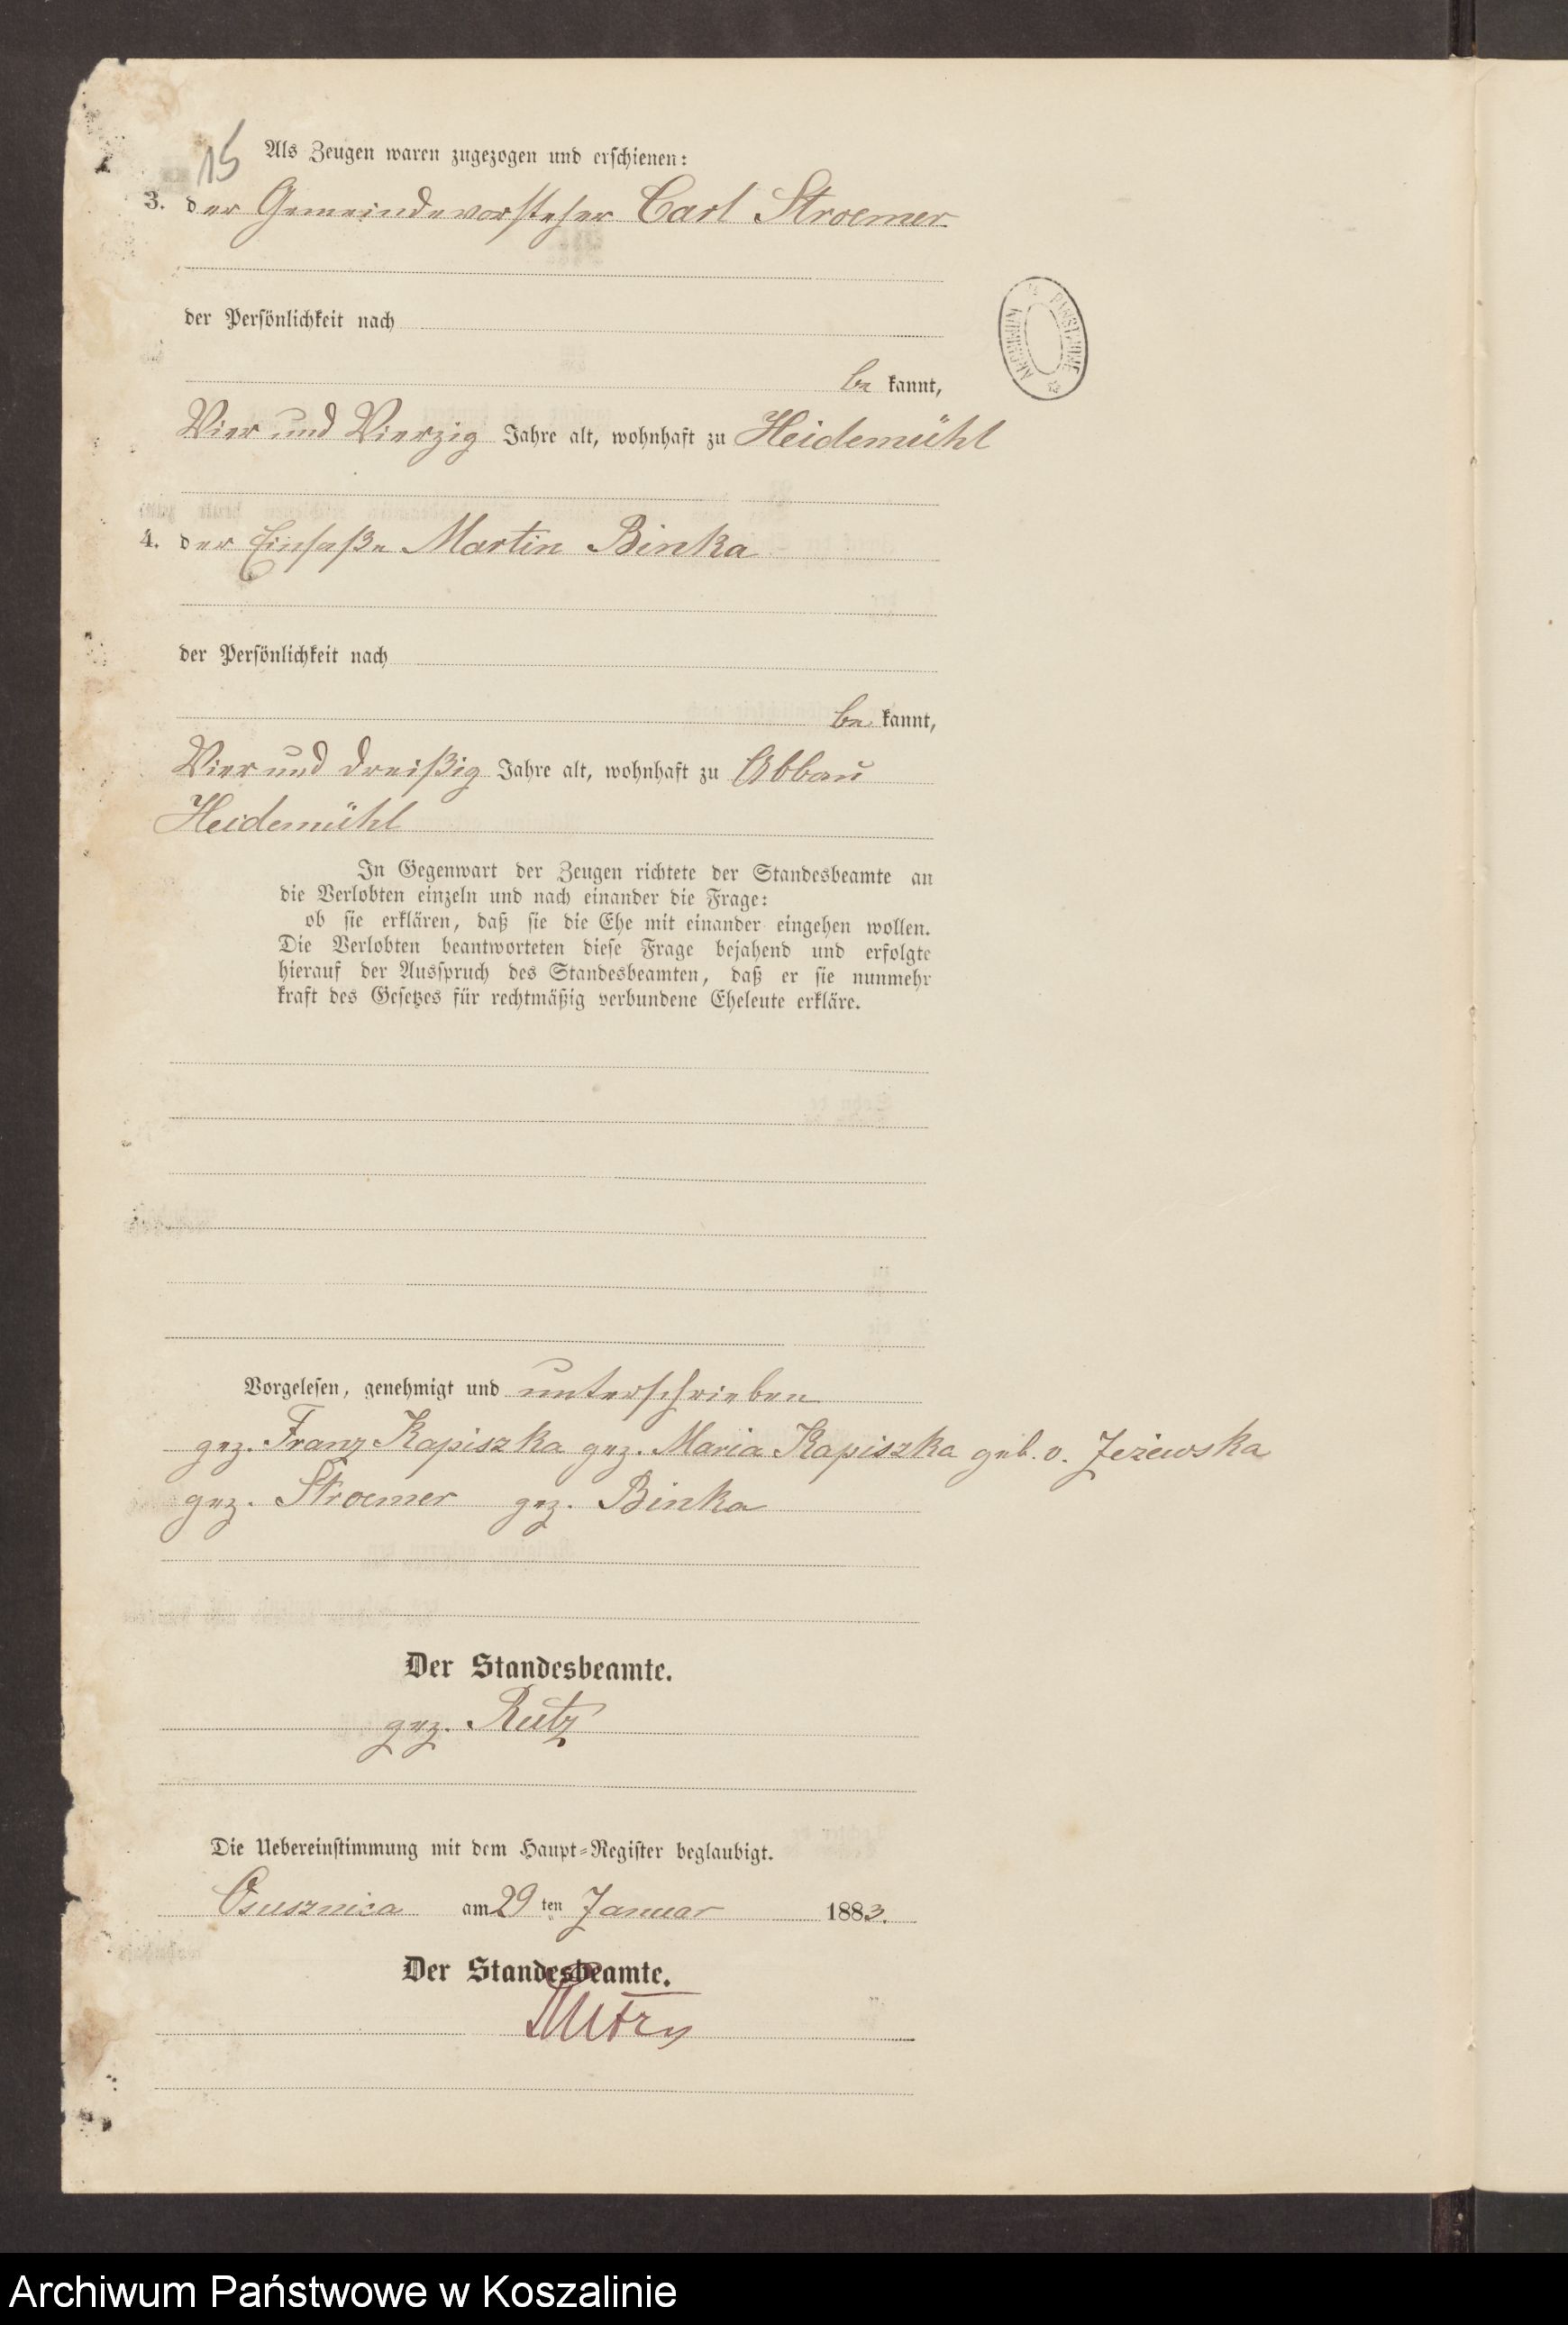 15
Als Zeugen waren zugezogen und erschienen:
3. der Gemeindevorsteher Carl Stroemer
der Persönlichkeit nach
be kannt,
Vier und Vierzig Jahre alt, wohnhaft zu Heidemühl
4. der Einsaße Martin Binka
der Persönlichkeit nach
be kannt,
Vier und dreißig Jahre alt, wohnhaft zu Abbau
Heidemühl
In Gegenwart der Zeugen richtete der Standesbeamte an
die Verlobten einzeln und nach einander die Frage:
ob sie erklären, daß sie die Ehe mit einander eingehen wollen.
Die Verlobten beantworteten diese Frage bejahend und erfolgte
hierauf der Ausspruch des Standesbeamten, daß er sie nunmehr
kraft des Gesetzes für rechtmäßig verbundene Eheleute erkläre.
Vorgelesen, genehmigt und unterschrieben
gez. Franz Kapiszka gez. Maria Kapiszka geb. v. Jeżewska
gez. Stroemer gez. Binka
Der Standesbeamte.
gez. Rutz
Die Uebereinstimmung mit dem Haupt=Register beglaubigt.
Osusznica am 29 ten Januar 1883.
Der Standesbeamte.
ARCHIWUM PAŃSTWOWE
Archiwum Państwowe w Koszalinie